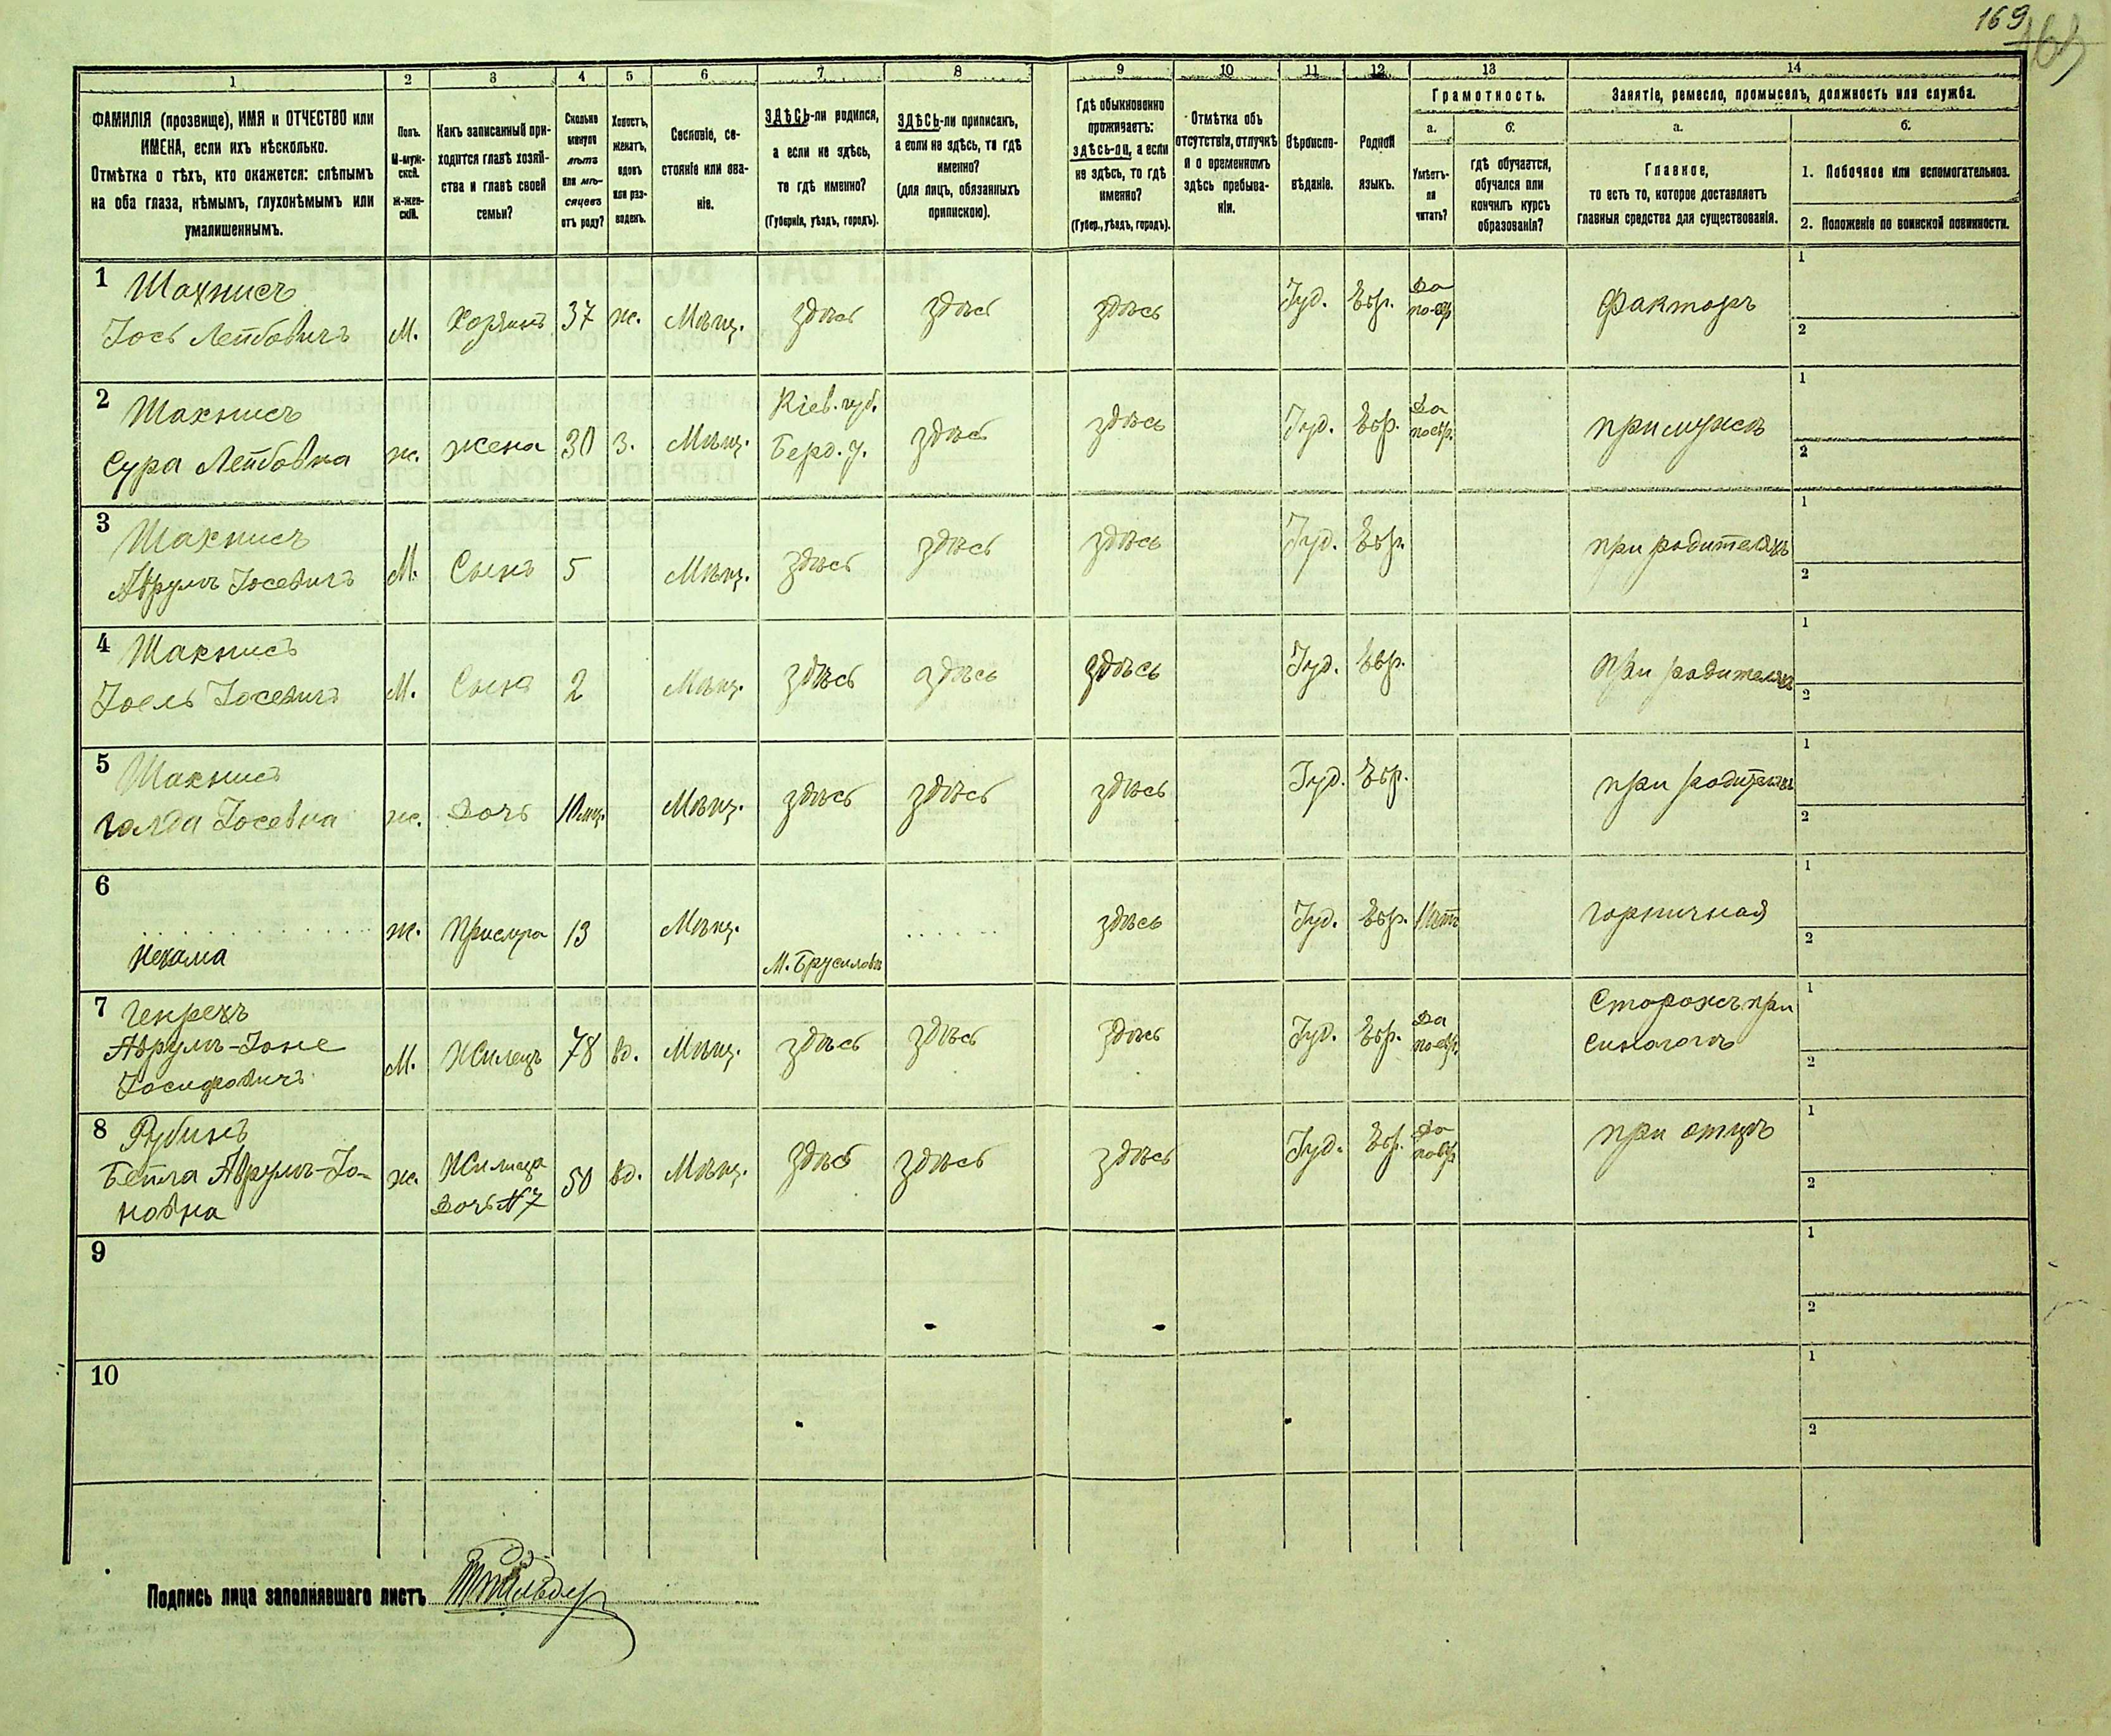 169
169
1 2 3 4 5 6 7 8 9 10 11 12 13 14
ФАМИЛІЯ (прозвище), ИМЯ и ОТЧЕСТВО или
ИМЕНА, если ихъ нѣсколько.
Отмѣтка о тѣхъ, кто окажется: слѣпымъ
на оба глаза, нѣмымъ, глухонѣмымъ или
умалишеннымъ.
Полъ.
М-муж-
ской.
Ж-жен-
скій.
Какъ записанный при-
ходится главѣ хозяй-
ства и главѣ своей
семьи?
Сколько
минуло
лѣтъ
или мѣ-
сяцевъ
отъ роду?
Холостъ,
женатъ,
вдовъ
или раз-
веденъ.
Сословіе, со-
стояніе или зва-
ніе.
ЗДѢСЬ-ли родился,
а если не здѣсь,
то гдѣ именно?
(Губернія, уѣздъ, городъ).
ЗДѢСЬ-ли приписанъ,
а если не здѣсь, то гдѣ
именно?
(для лицъ, обязанныхъ
припискою).
Гдѣ обыкновенно
проживаетъ:
здѣсь-ли, а если
не здѣсь, то гдѣ
именно?
(Губер., уѣздъ, городъ).
Отмѣтка объ
отсутствіи, отлучкѣ
и о временномъ
здѣсь пребыва-
ніи.
Вѣроиспо-
вѣданіе.
Родной
языкъ.
Грамотность.
а.
Умѣетъ-
ли
читать?
б.
гдѣ обучается,
обучался или
кончилъ курсъ
образованія?
Занятіе, ремесло, промыселъ, должность или служба.
а.
Главное,
то есть то, которое доставляетъ
главныя средства для существованія.
б.
1. Побочное или вспомогательное.
2. Положеніе по воинской повинности.
1 Шахнисъ
Іось Лейбовичъ М. Хозяинъ 37 ж. Мѣщ. здѣсь здѣсь здѣсь Іуд. Евр. Да по-евр. факторъ 1 2
2 Шахнисъ
Сура Лейбовна ж. жена 30 з. Мѣщ. Кіев. губ. Берд. у. здѣсь здѣсь Іуд. Евр. Да по евр. при мужѣ 1 2
3 Шахнисъ
Аврумъ Іосевичъ М. Сынъ 5 Мѣщ. здѣсь здѣсь здѣсь Іуд. Евр. при родителяхъ 1 2
4 Шахнисъ
Іоель Іосевичъ М. Сынъ 2 Мѣщ. здѣсь здѣсь здѣсь Іуд. Евр. при родителяхъ 1 2
5 Шахнисъ
Голда Іосевна ж. Дочь 10 мц. Мѣщ. здѣсь здѣсь здѣсь Іуд. Евр. при родителяхъ 1 2
6
Нехама ж. Прислуга 13 Мѣщ. М. Брусиловъ здѣсь Іуд. Евр. Нѣтъ горничная 1 2
7 Генрехъ
Аврумъ-Іоне
Іосифовичъ М. Жилецъ 78 вд. Мѣщ. здѣсь здѣсь здѣсь Іуд. Евр. Да по-евр. Сторожъ при синагогѣ 1 2
8 Рубинъ
Бейла Аврумъ-Іо-
новна ж. Жилица Дочь №7 50 вд. Мѣщ. здѣсь здѣсь здѣсь Іуд. Евр. Да по евр. при отцѣ 1 2
9 1 2
10 1 2
Подпись лица заполнявшаго листъ